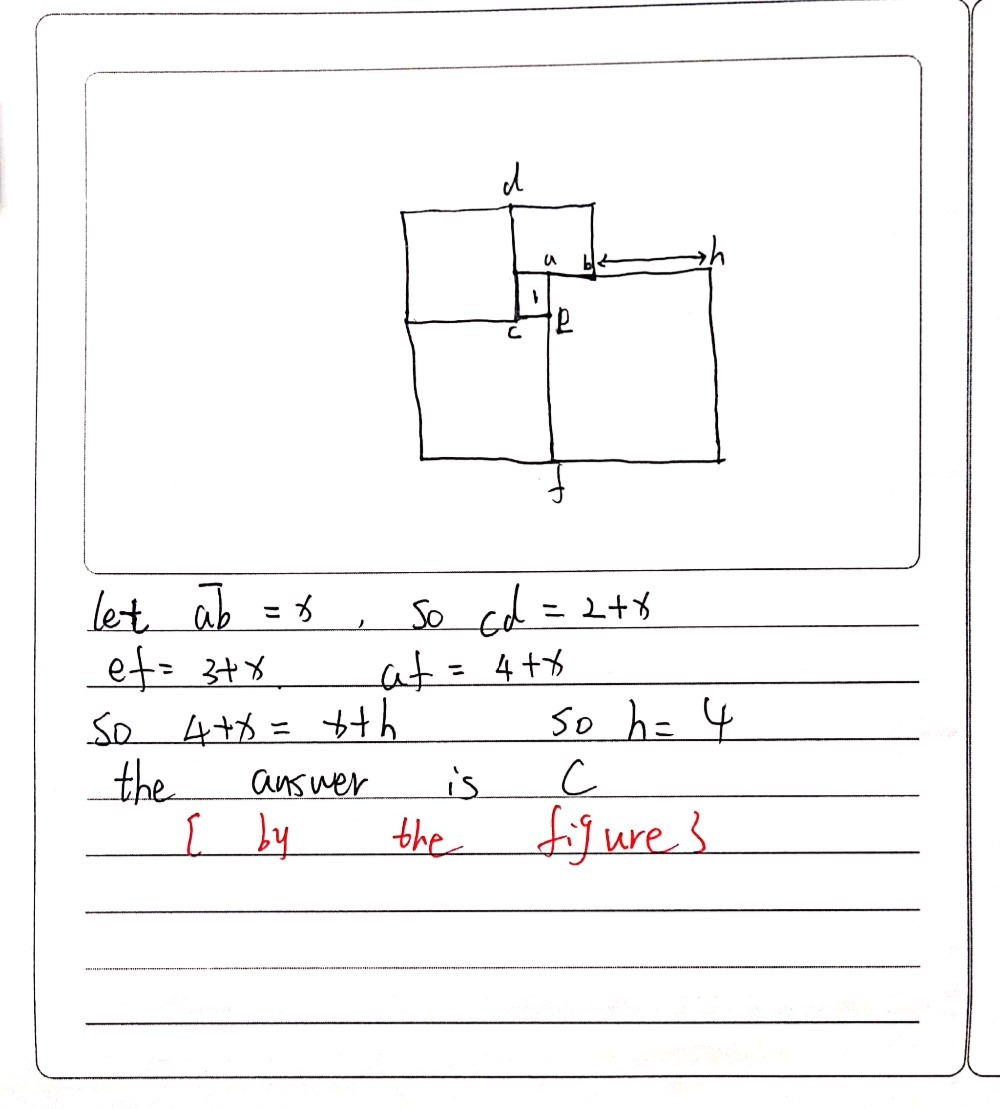 d
a b h
1
c e
f
let ab = x , so cd = 2+x
ef = 3+x af = 4+x
so 4+x = x+h so h = 4
the answer is C
[ by the figure}